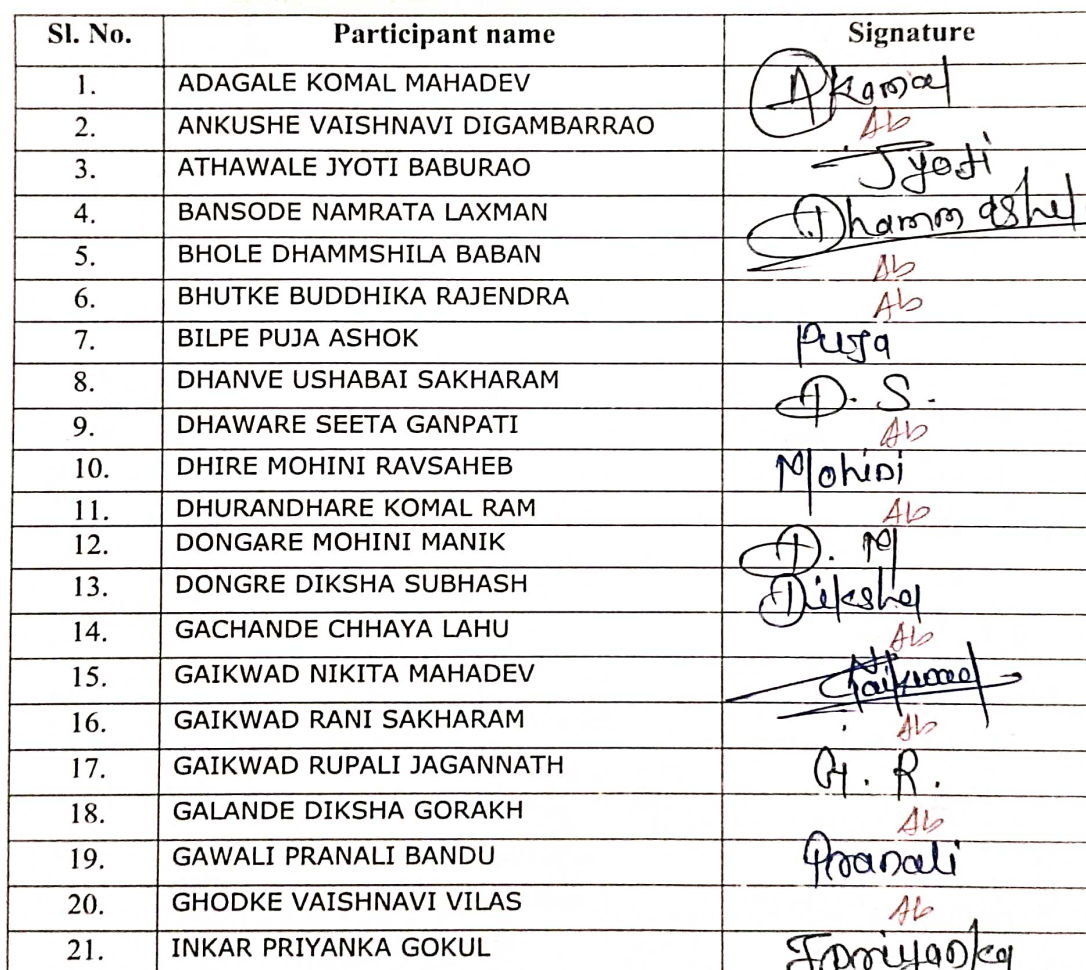 Sl. No. Participant name Signature
1. ADAGALE KOMAL MAHADEV AKomal
2. ANKUSHE VAISHNAVI DIGAMBARRAO Ab
3. ATHAWALE JYOTI BABURAO Jyoti
4. BANSODE NAMRATA LAXMAN Dhammashel
5. BHOLE DHAMMSHILA BABAN Ab
6. BHUTKE BUDDHIKA RAJENDRA Ab
7. BILPE PUJA ASHOK Puja
8. DHANVE USHABAI SAKHARAM D. S.
9. DHAWARE SEETA GANPATI Ab
10. DHIRE MOHINI RAVSAHEB Mohini
11. DHURANDHARE KOMAL RAM Ab
12. DONGARE MOHINI MANIK D. M
13. DONGRE DIKSHA SUBHASH Diksha
14. GACHANDE CHHAYA LAHU Ab
15. GAIKWAD NIKITA MAHADEV Gaikwad
16. GAIKWAD RANI SAKHARAM Ab
17. GAIKWAD RUPALI JAGANNATH G. R.
18. GALANDE DIKSHA GORAKH Ab
19. GAWALI PRANALI BANDU Pranali
20. GHODKE VAISHNAVI VILAS Ab
21. INKAR PRIYANKA GOKUL IPriyanka